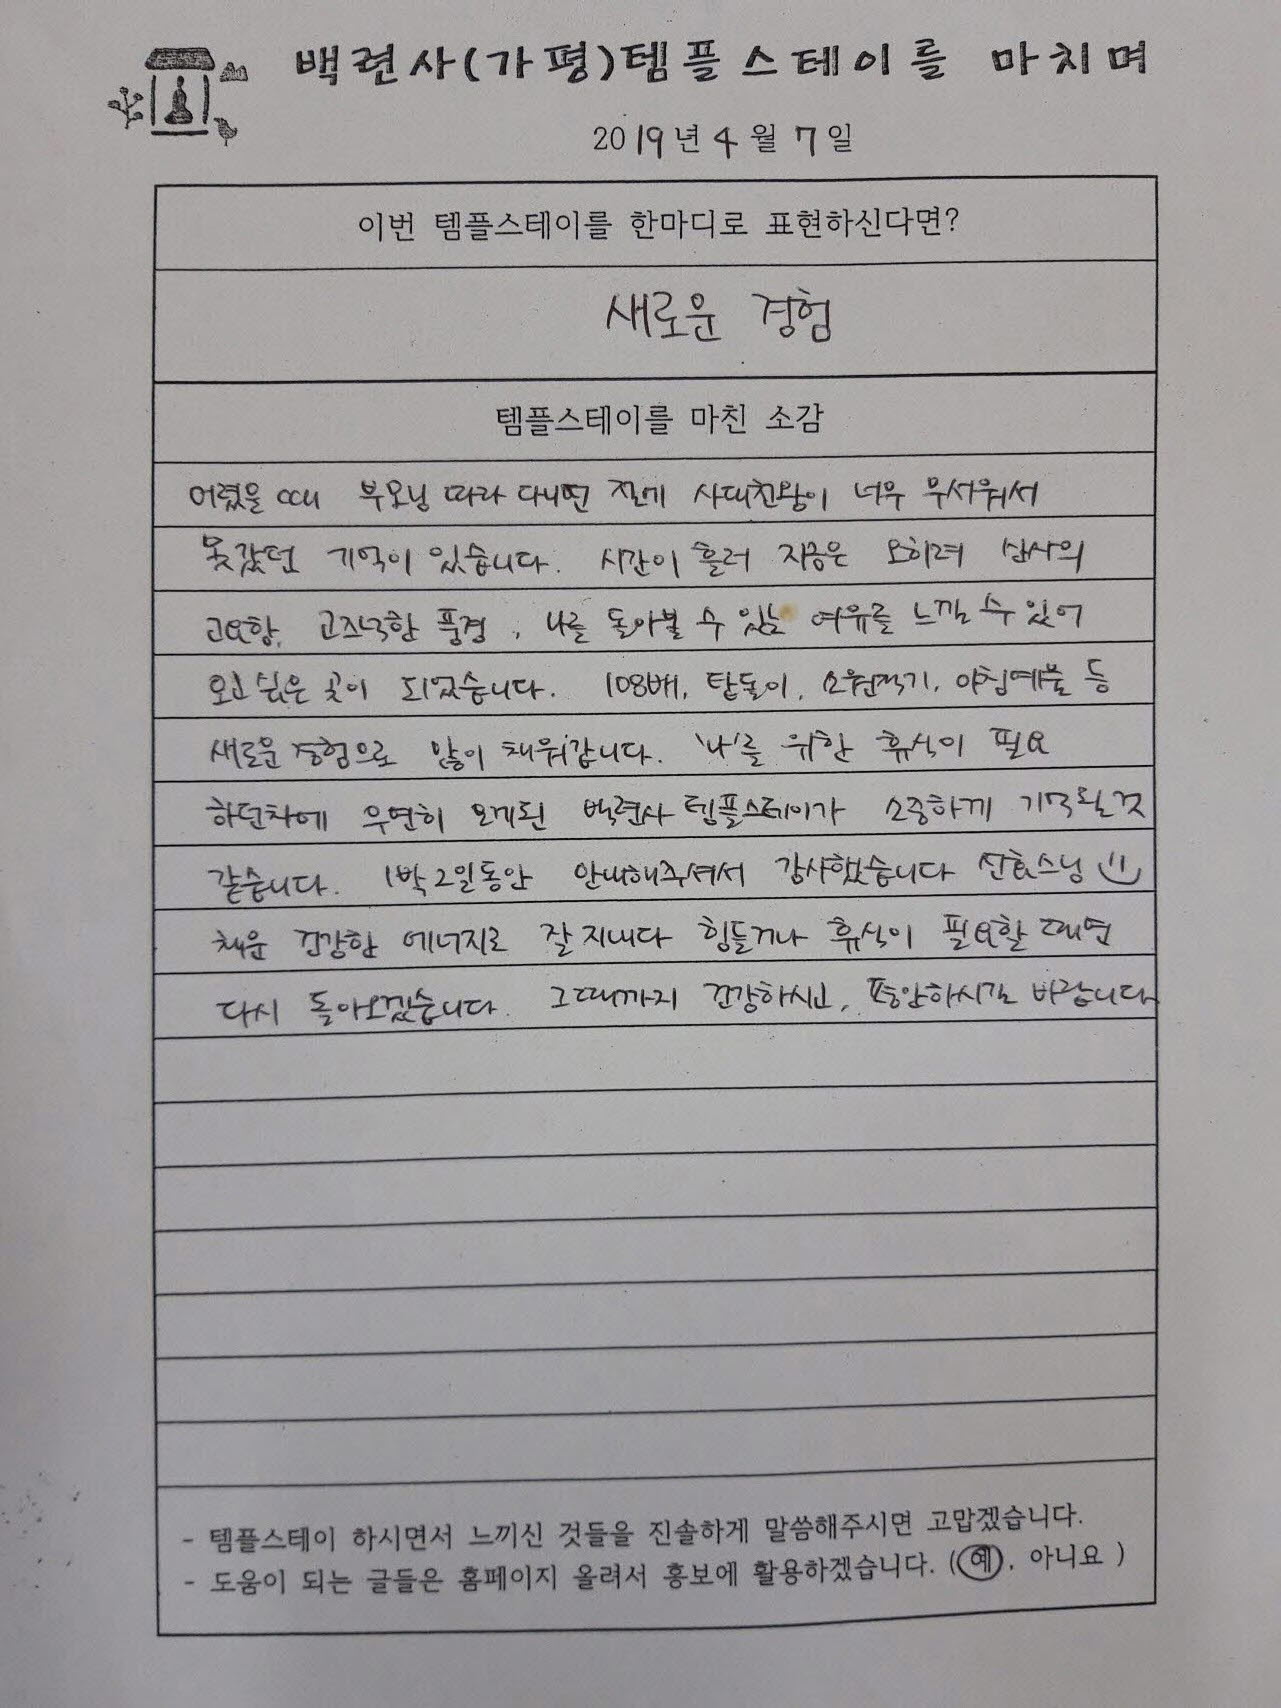 백련사(가평)템플스테이를 마치며
2019년 4월 7일
이번 템플스테이를 한마디로 표현하신다면?
새로운 경험
템플스테이를 마친 소감
어렸을 때 부모님 따라 다니면 절에 사대천왕이 너무 무서워서
못갔던 기억이 있습니다. 시간이 흘러 지금은 오히려 산사의
고요함, 고즈넉한 풍경, 나를 돌아볼 수 있는 여유를 느낄 수 있어
오고 싶은 곳이 되었습니다. 108배, 탑돌이, 소원적기, 아침예불 등
새로운 경험으로 많이 채워갑니다. '나'를 위한 휴식이 필요
하던차에 우연히 오게된 백련사 템플스테이가 소중하게 기억될 것
같습니다. 1박 2일동안 안내해주셔서 감사했습니다 스님
채운 건강한 에너지로 잘 지내다 힘들거나 휴식이 필요할 때면
다시 돌아오겠습니다. 그때까지 건강하시고, 평안하시길 바랍니다
- 템플스테이 하시면서 느끼신 것들을 진솔하게 말씀해주시면 고맙겠습니다.
- 도움이 되는 글들은 홈페이지 올려서 홍보에 활용하겠습니다. (예, 아니요 )